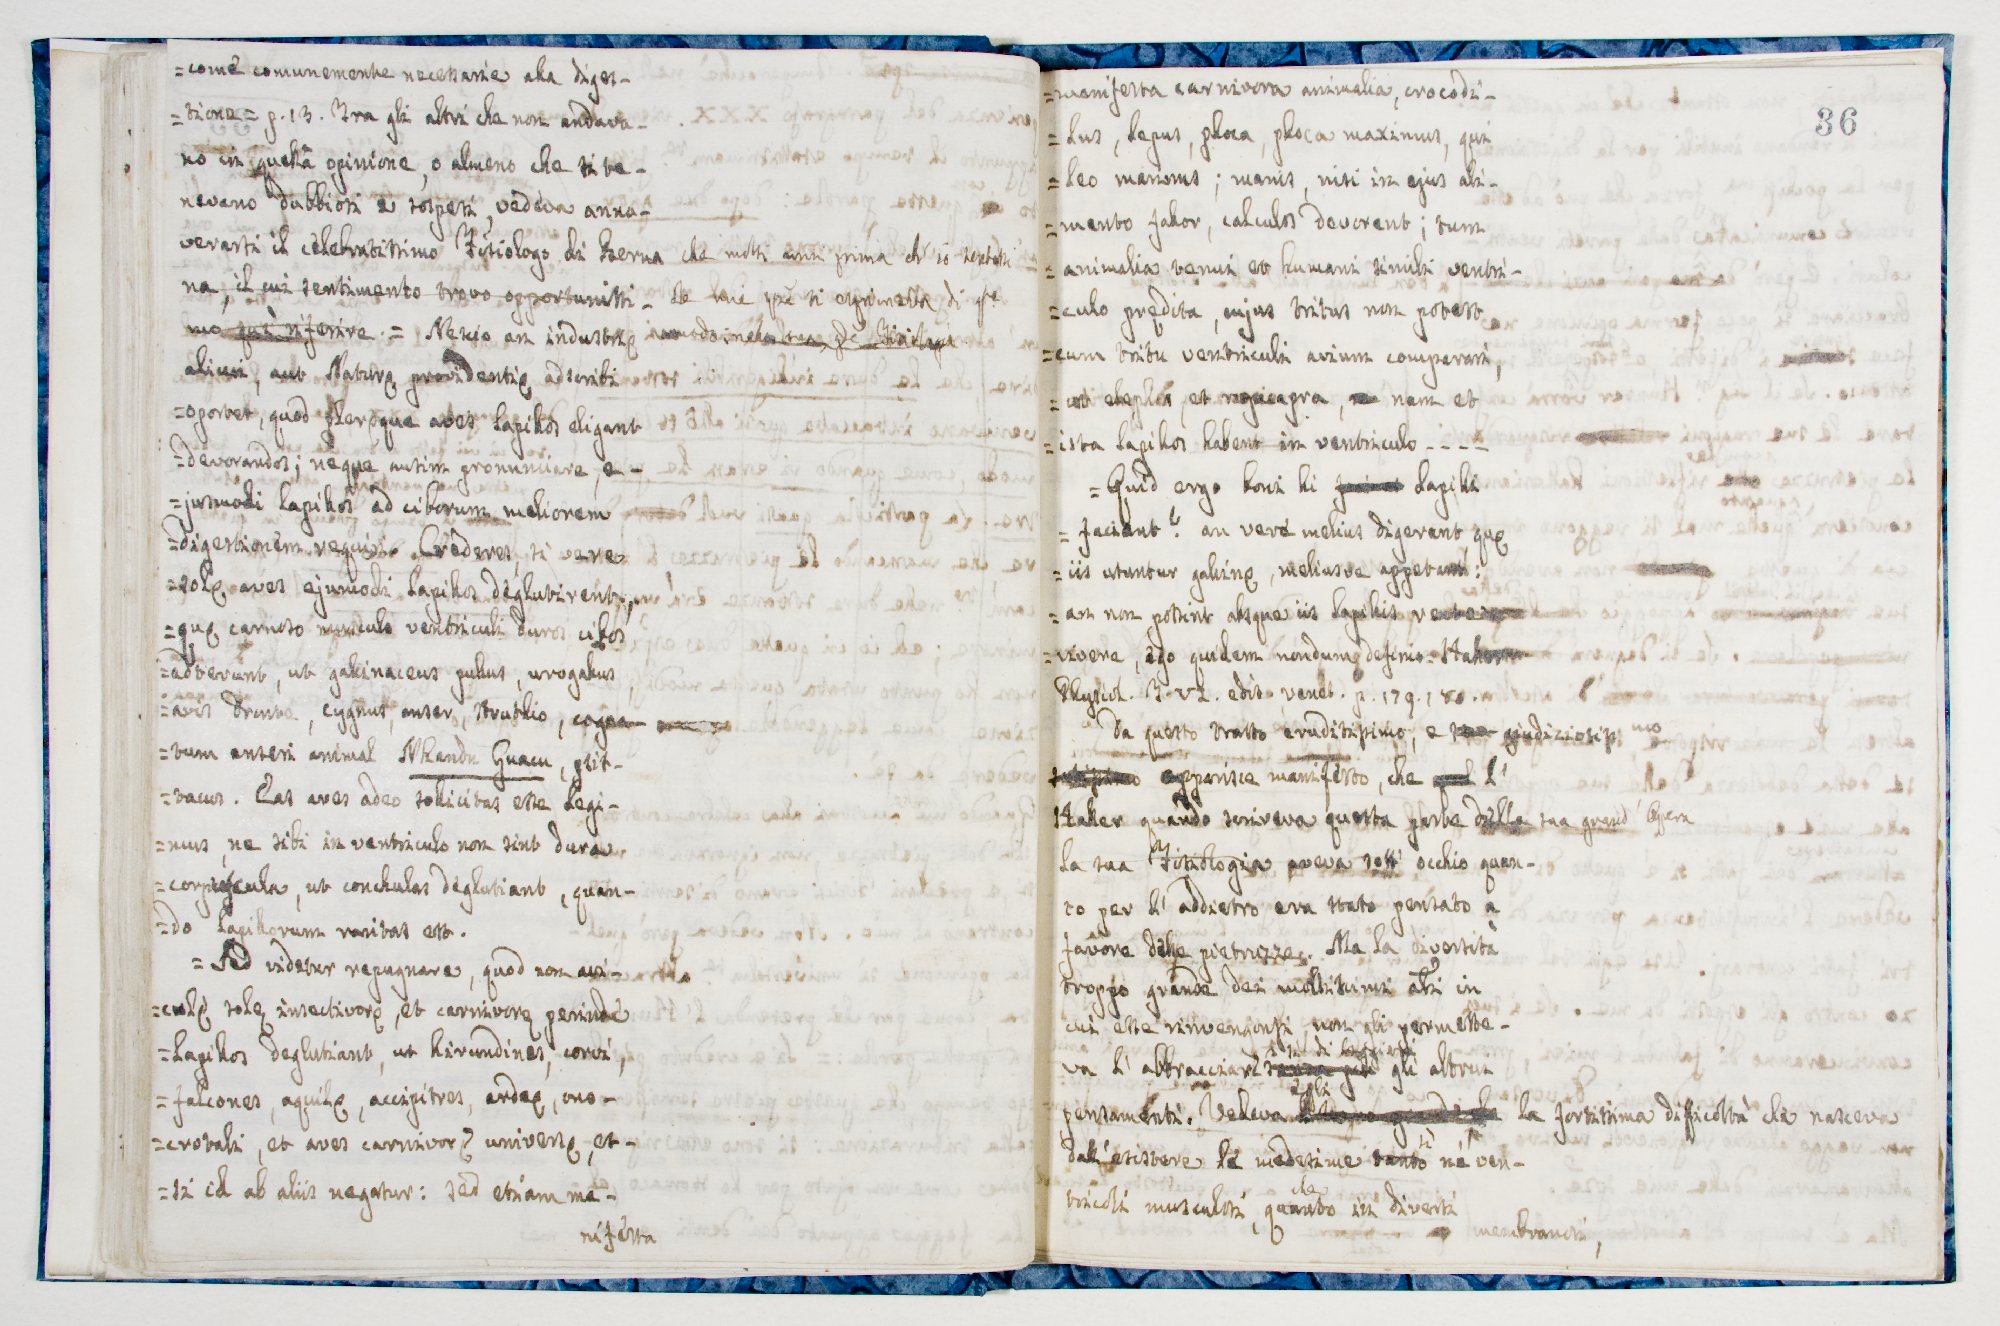 =come comunemente necessarie alla diges-
=tione= p. 13. Tra gli altri che non andava-
no in questa opinione, o almeno che si te-
nevano dubbiosi e sospesi, vedeva annu-
verarsi il celebratissimo Fisiologo di Berna che molti anni prima ch' io
na, il cui sentimento trovo opportunissi-
mo quì riferire. = Nescio an industriæ
alicui, aut Naturæ providentiæ adscribi
=oporteat, quod pleræque aves lapillos eligant
=devorandos; neque ausim pronunciare, e-
=jusmodi lapillos ad ciborum meliorem
=digestionem requiri. Crederes, si vere
=solæ aves ejusmodi lapillos deglutirent,
=quæ carnoso musculo ventriculi duros cibos
=adterunt, ut gallinaceus pullus, urogallus,
=avis struta, cygnus, anser, struthio, cogna-
=tum anseri animal Nhandu Guacu, psit-
=tacus. Eas aves adeo sollicitas esse legi-
=mus, ne sibi in ventriculo non sint dura
=corpuscula, ut conchulas deglutiant, quan-
=do lapillorum raritas est.
=Sed videtur repugnare, quod non avi-
=culæ solæ insectivoræ, et carnivoræ perinde
=lapillos deglutiant, ut hirundines, corvi,
=falcones, aquilæ, accipitres, ardeæ, ono-
=crotali, et aves carnivoræ universæ, et-
=si id ab aliis negatur: sed etiam ma-
nifesta
36
=manifesta carnivora animalia, crocodi-
=lus, lupus, phoca, phoca maximus, qui
=leo marinus; manis, nisi in ejus ali-
=mento fallor, calculos devorent; tum
=animalia tenui et humani simili ventri-
=culo prædita, cujus tritus non potest
=cum tritu ventriculi avium comparari,
=uti elephas, et nam et
=ista lapillos habent in ventriculo - - - -
=Quid ergo boni hi lapilli
=faciant? an vere melius digerant quæ
=iis utuntur gallinæ, meliusve appetant:
=an non possint absque iis lapillis
=vivere, ego quidem nondum definio. Haller
Physiol. T. VI. edit. venet. p. 179. 180.
Da questo tratto eruditissimo, e giudiziosissmo
apparisce manifesto, che l'
Haller quando scriveva questa parte della sua grand' Opera
la sua Fisiologia aveva sott' occhio quan-
to per l' addietro era stato pensato a
favore delle pietruzze. Ma la diversità
troppo grande dei moltissimi in
cui esse rinvengonsi, non gli permette-
va l' abbracciare gli altrui
pensamenti. Vedeva egli la fortissima difficoltà che nasceva
dall' esistere le medesime sì ne' ven-
tricoli musculosi, che in diversi
membranosi,